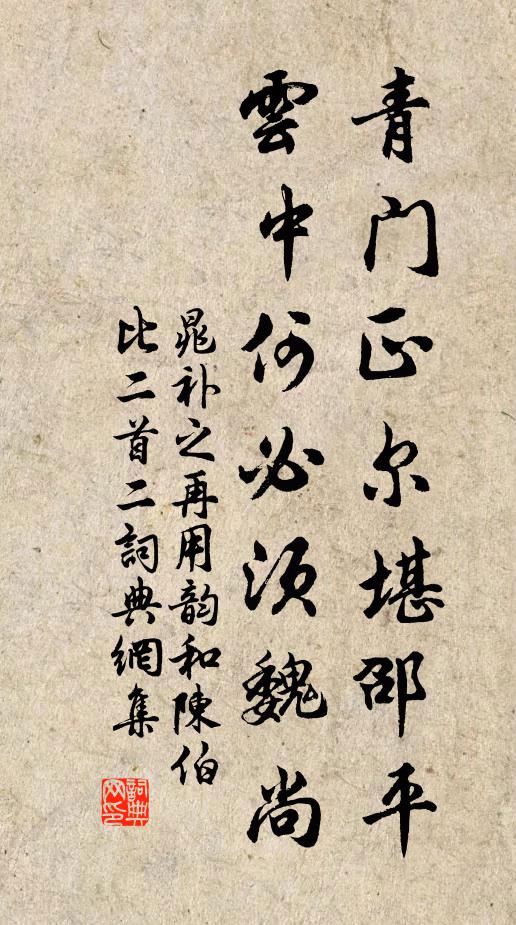 青门正尔堪邵平
雲中何必须魏尚
晁补之再用韵和陳伯
比二首二詞典網集
詞典网印